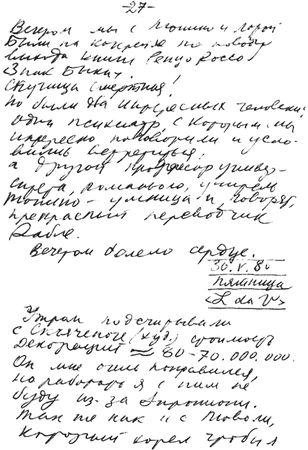 -27-
Вечером мы с Тонино и Лорой
были на концерте по поводу
выхода книги Ренцо Россо
Знак Быка.
Скучища смертная!
Но были два интересных человека:
один психиатр с которым мы
интересно поговорили и усло-
вились встретиться.
а другой профессор универ-
ситета, романолог, учитель
Тонино - умница и, говорят
прекрасный переводчик
Рабле.
Вечером болело сердце.
30.V.80
пятница
<L da V>
Утром подсчитывали
с (худ.) стоимость
декораций ≈ 60-70.000.000.
Он мне очень понравился,
но работать я с ним не
буду из-за
Так же как и с
который хотел